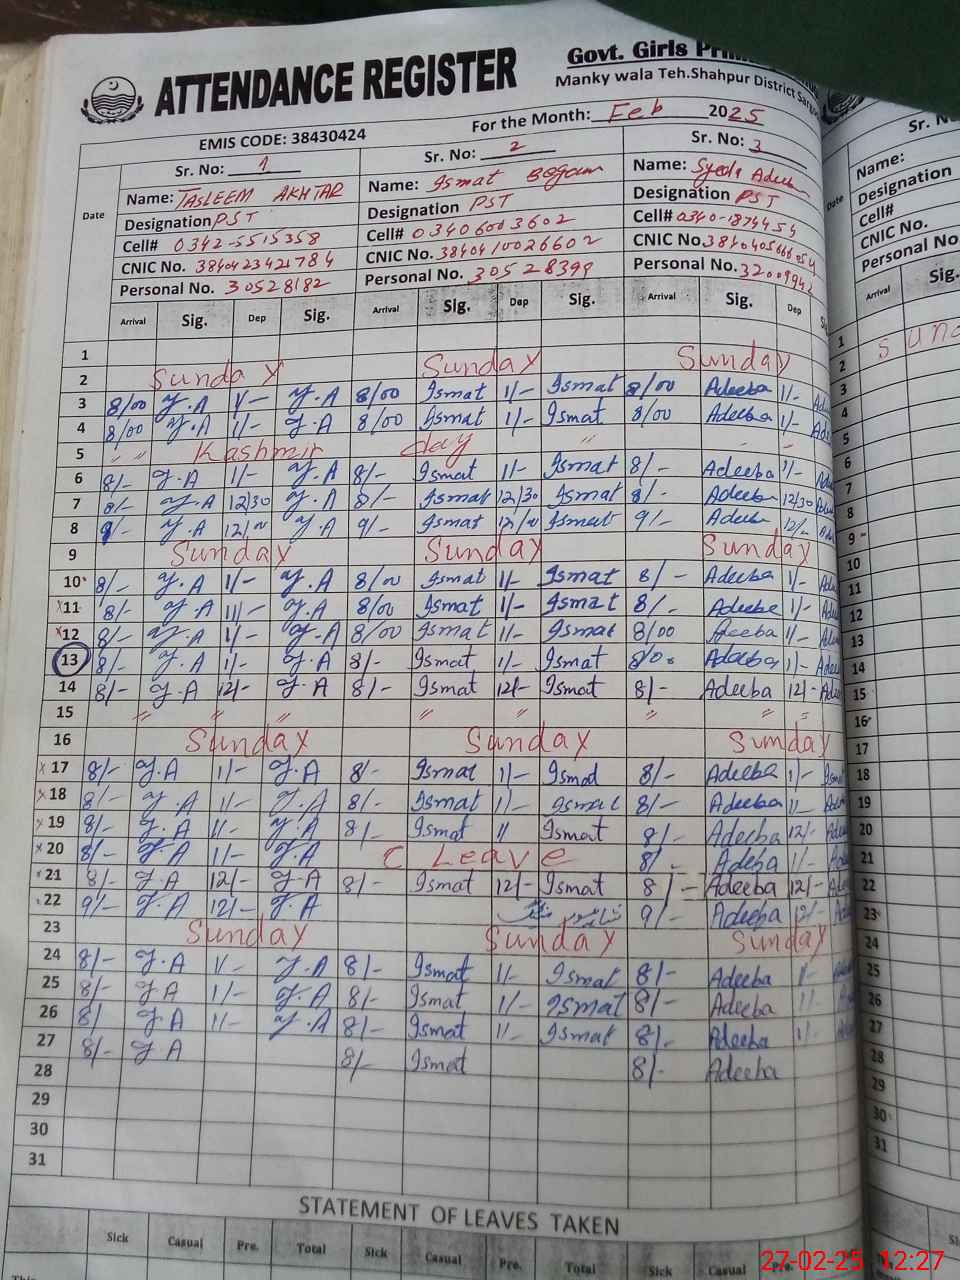 ATTENDANCE REGISTER
Govt. Girls
Manky wala Teh.Shahpur District
EMIS CODE: 38430424
For the Month: Feb 2025
Date
Sr. No: 1
Sr. No: 2
Sr. No: 3
Name: TASLEEM AKHTAR
Name: Ismat Begam
Name: Syeda Adeeba
Designation PST
Designation PST
Designation PST
Cell# 0342-5515358
Cell# 03406003602
Cell# 0340-1874454
CNIC No. 3840423421784
CNIC No. 3840410026602
CNIC No.
Personal No. 30528182
Personal No. 30528399
Personal No. 32009942
Arrival Sig. Dep Sig. Arrival Sig. Dep Sig. Arrival Sig. Dep
1
2 Sunday Sunday Sunday
3 8/00 T.A 1/- T.A 8/00 Ismat 1/- Ismat 8/00 Adeeba 1/-
4 8/00 T.A 1/- T.A 8/00 Ismat 1/- Ismat 8/00 Adeeba 1/-
5 " " Kashmir day "
6 8/- T.A 1/- T.A 8/- Ismat 1/- Ismat 8/- Adeeba 1/-
7 8/- T.A 12/30 T.A 8/- Ismat 12/30 Ismat 8/- Adeeba 12/30
8 9/- T.A 12/00 T.A 9/- Ismat 12/00 Ismat 9/- Adeeba 12/-
9 Sunday Sunday Sunday
10 8/- T.A 1/- T.A 8/00 Ismat 1/- Ismat 8/- Adeeba 1/-
x11 8/- T.A 1/- T.A 8/00 Ismat 1/- Ismat 8/- Adeeba 1/-
x12 8/- T.A 1/- T.A 8/00 Ismat 1/- Ismat 8/00 Adeeba 1/-
13 8/- T.A 1/- T.A 8/- Ismat 1/- Ismat 8/00 Adeeba 1/-
14 8/- T.A 12/- T.A 8/- Ismat 12/- Ismat 8/- Adeeba 12/-
15 " " " " " " " "
16 Sunday Sunday Sunday
x 17 8/- T.A 1/- T.A 8/- Ismat 1/- Ismat 8/- Adeeba 1/-
x 18 8/- T.A 1/- T.A 8/- Ismat 1/- Ismat 8/- Adeeba 1/-
x 19 8/- T.A 1/- T.A 8/- Ismat 1/ Ismat 8/- Adeeba 12/-
x 20 8/- T.A 1/- T.A C Leave 8/- Adeeba 1/-
21 8/- T.A 12/- T.A 8/- Ismat 12/- Ismat 8/- Adeeba 12/-
22 9/- T.A 12/- T.A 9/- Adeeba 12/-
23 Sunday Sunday Sunday
24 8/- T.A 1/- T.A 8/- Ismat 1/- Ismat 8/- Adeeba 1/-
25 8/- T.A 1/- T.A 8/- Ismat 1/- Ismat 8/- Adeeba 1/-
26 8/ T.A 1/- T.A 8/- Ismat 1/- Ismat 8/- Adeeba 1/-
27 8/- T.A 8/- Ismat 8/- Adeeba
28
29
30
31
STATEMENT OF LEAVES TAKEN
Sick Casual Pre. Total Sick Casual Pre. Total Sick Casual Pre.
Name:
Designation
Cell#
CNIC No.
Personal No.
Date
Arrival Sig.
1
2
3
4
5
6
7
8
9
10
11
12
13
14
15
16
17
18
19
20
21
22
23
24
25
26
27
28
29
30
31
27-02-25 12:27